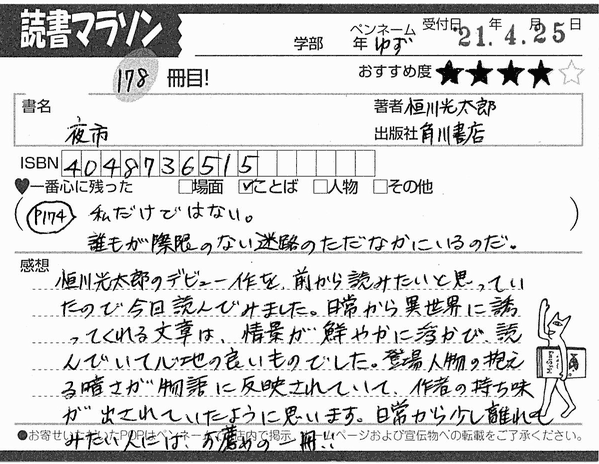 読書マラソン
学部 年 ペンネーム ゆず 受付日 21年4月25日
178 冊目! おすすめ度 ★★★★☆
書名 夜市
著者 恒川光太郎
出版社 角川書店
ISBN 4048736515
♥一番心に残った □場面 ☑ことば □人物 □その他
(P174) 私だけではない。
誰もが際限のない迷路のただなかにいるのだ。
感想
恒川光太郎のデビュー作を、前から読みたいと思ってい
たので今日読んでみました。日常から異世界に誘
ってくれる文章は、情景が鮮やかに浮かび、読
んでいて心地の良いものでした。登場人物の抱え
る暗さが物語に反映されていて、作者の持ち味
が出されていたように思います。日常から少し離れて
みたい人には、お薦めの一冊!!
●お寄せいただいたPOPはペンネームで店内で掲示、ホームページおよび宣伝物への転載をご了承ください。